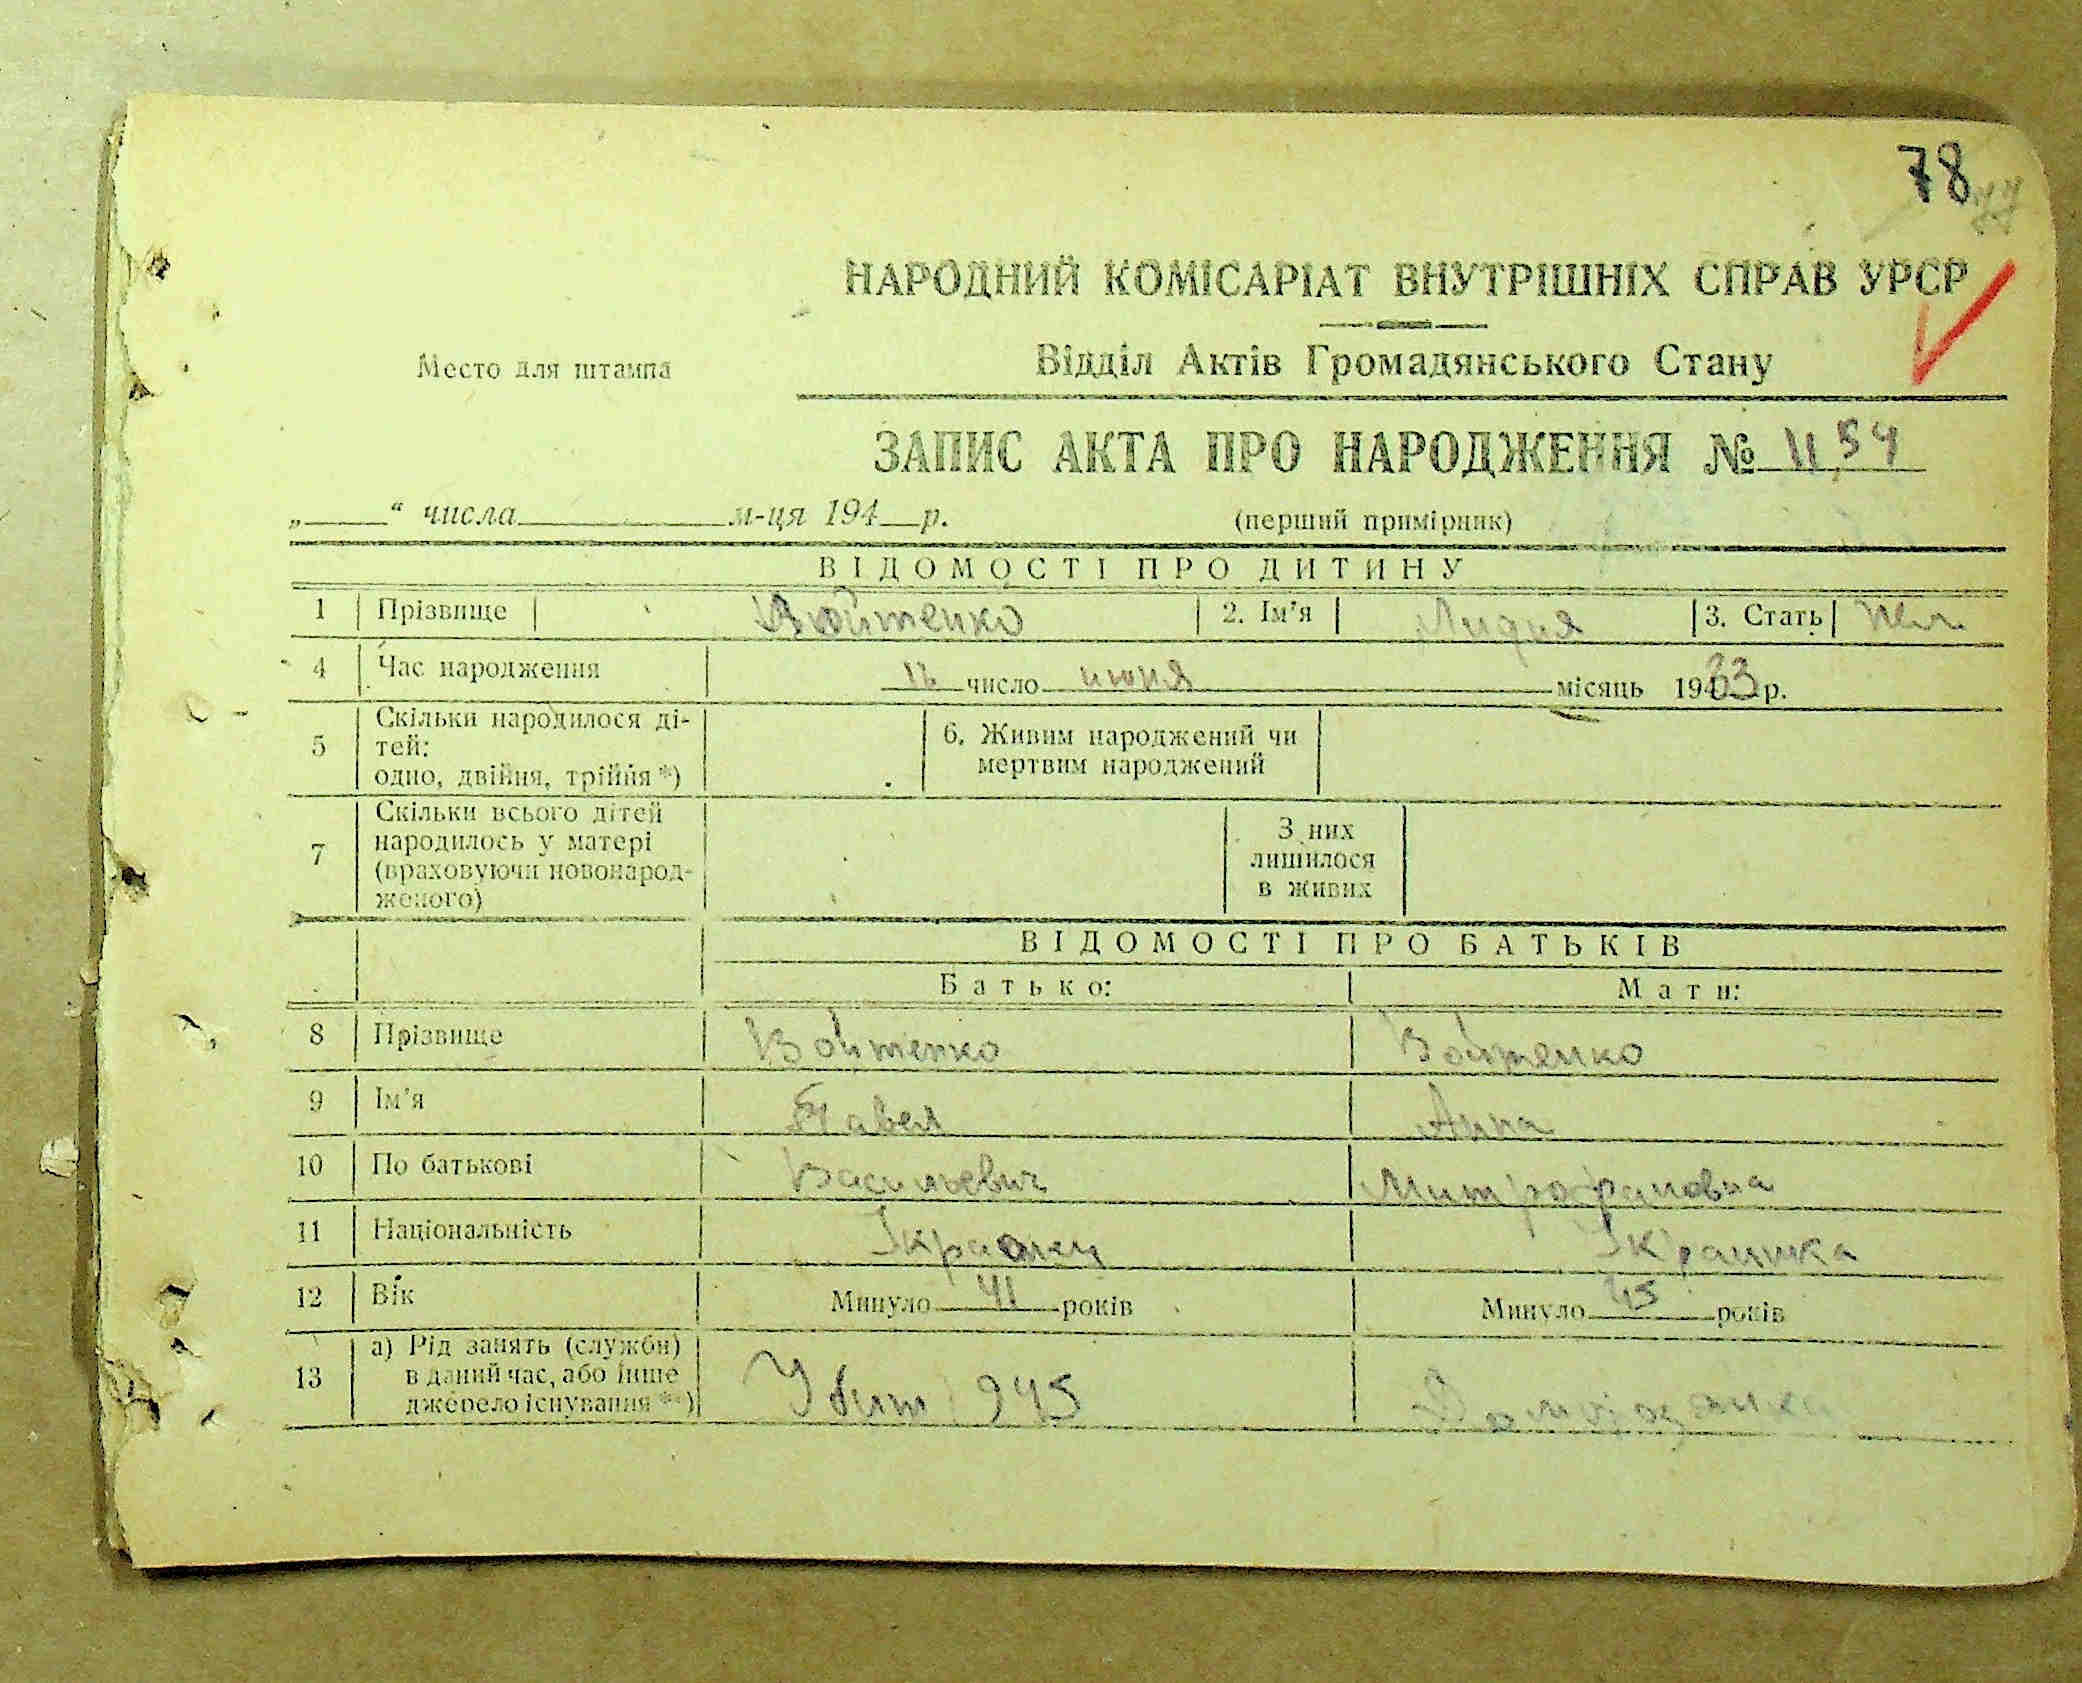 78
НАРОДНИЙ КОМІСАРІАТ ВНУТРІШНІХ СПРАВ УРСР
Место для штампа
Відділ Актів Громадянського Стану
ЗАПИС АКТА ПРО НАРОДЖЕННЯ № 1154
„ “ числа м-ця 194 р.
(перший примірник)
ВІДОМОСТІ ПРО ДИТИНУ
1 Прізвище Войтенко 2. Ім’я Лидия 3. Стать
4 Час народження число июня місяць 19 33 р.
5 Скільки народилося ді-
тей:
одно, двійня, трійня *)
6. Живим народжений чи
мертвим народжений
7 Скільки всього дітей
народилось у матері
(враховуючи новонарод-
женого)
З них
лишилося
в живих
ВІДОМОСТІ ПРО БАТЬКІВ
Батько: Мати:
8 Прізвище Войтенко Войтенко
9 Ім’я Павел Анна
10 По батькові Васильевич Митрофановна
11 Національність
12 Вік Минуло 41 років Минуло 45 років
13 а) Рід занять (служби)
в даний час, або інше
джерело існування **)
Убит 1945